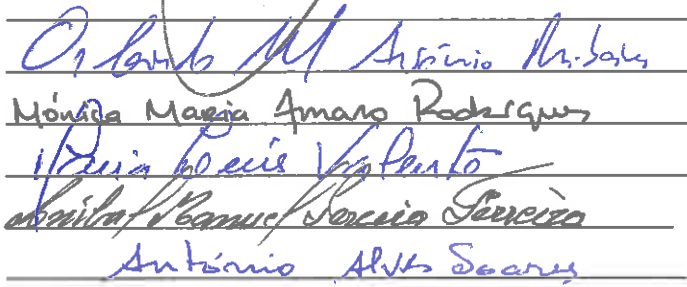 Orlando M António
Mónica Maria Amaro Rodrigues
Maria
Aníbal Manuel Pereira Ferreira
António Alves Soares